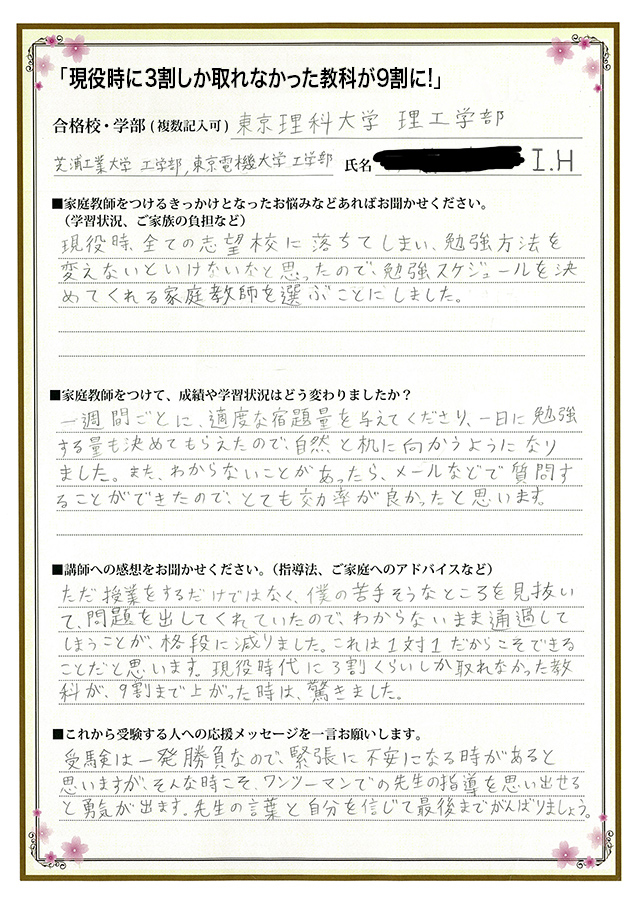 「現役時に3割しか取れなかった教科が9割に!」
合格校・学部(複数記入可) 東京理科大学 理工学部
芝浦工業大学 工学部, 東京電機大学 工学部 氏名 I.H
■家庭教師をつけるきっかけとなったお悩みなどあればお聞かせください。
(学習状況、ご家族の負担など)
現役時、全ての志望校に落ちてしまい、勉強方法を
変えないといけないなと思ったので、勉強スケジュールを決
めてくれる家庭教師を選ぶことにしました。
■家庭教師をつけて、成績や学習状況はどう変わりましたか?
一週間ごとに、適度な宿題量を与えてくださり、一日に勉強
する量も決めてもらえたので、自然と机に向かうようになり
ました。また、わからないことがあったら、メールなどで質問す
ることができたので、とても効率が良かったと思います。
■講師への感想をお聞かせください。(指導法、ご家庭へのアドバイスなど)
ただ授業をするだけではなく、僕の苦手そうなところを見抜い
て、問題を出してくれていたので、わからないまま通過して
しまうことが、格段に減りました。これは1対1だからこそできる
ことだと思います。現役時代に3割くらいしか取れなかった教
科が、9割まで上がった時は、驚きました。
■これから受験する人への応援メッセージを一言お願いします。
受験は一発勝負なので、緊張に不安になる時があると
思いますが、そんな時こそ、ワンツーマンでの先生の指導を思い出せる
と勇気が出ます。先生の言葉と自分を信じて最後までがんばりましょう。